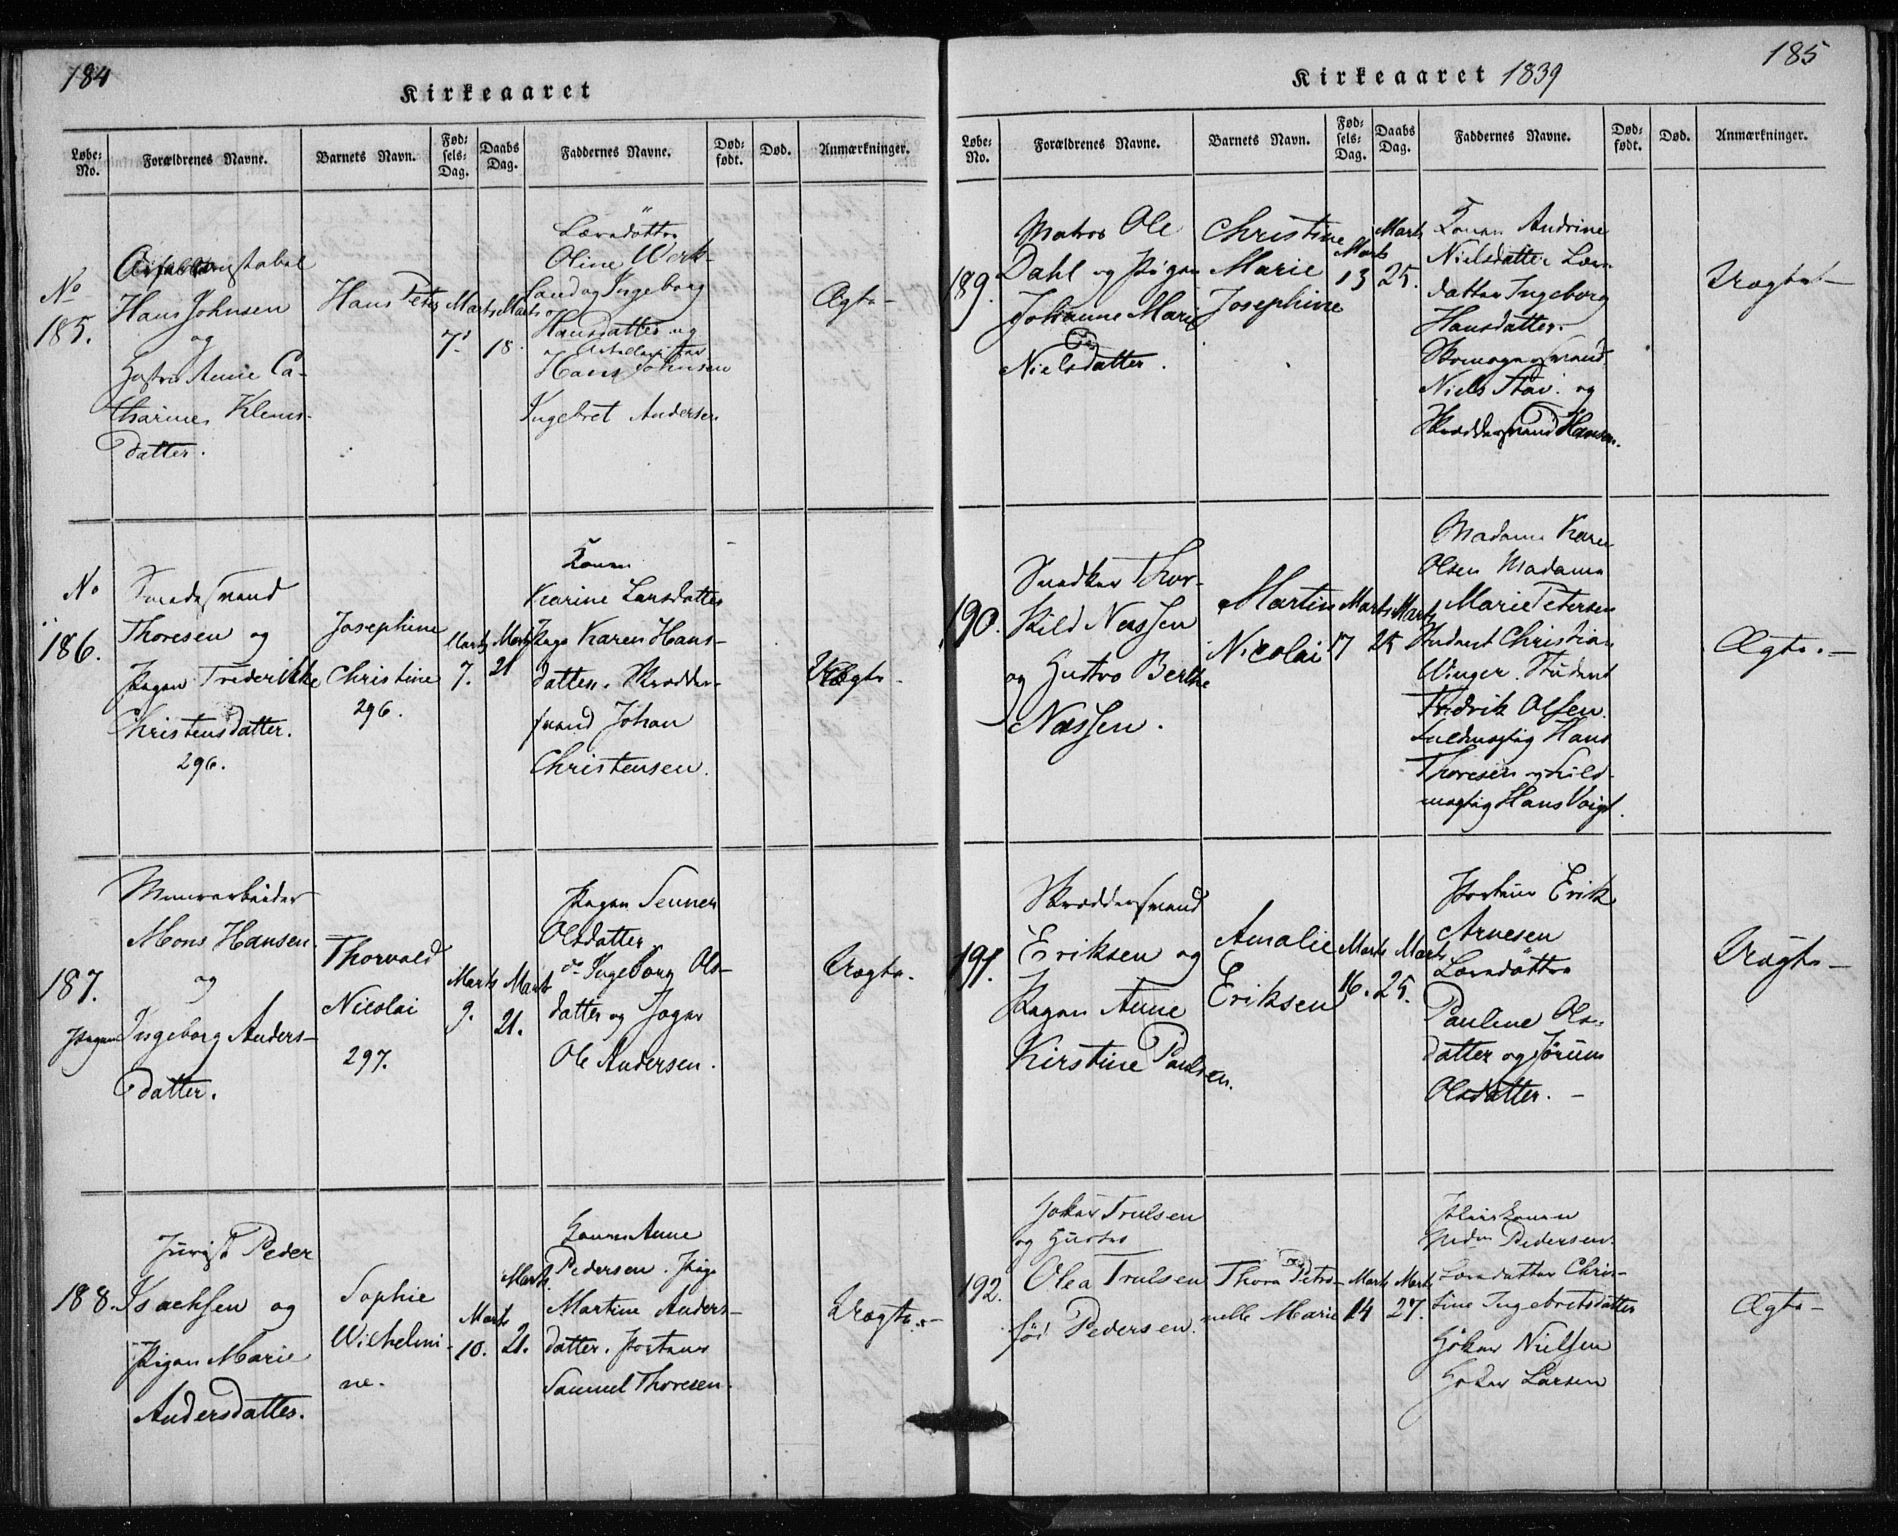 184
Kirkeaaret
Løbe-No. Forældrenes Navne. Barnets Navn. Fødsels-Dag. Daabs Dag. Faddernes Navne. Dødfødt. Død. Anmærkninger.
No
185.
Hans Johnsen
og
Hustro Anne Ca-
tharine Klems-
datter.
Hans Peter
Marts
7.
Marts
18.
Oline Werk-
land og Ingeborg
Hansdatter og
Hans Johnsen
Ingebret Andersen
Ægte
No
186.
Smedesvend
Thoresen og
Pigen Frederikke
Christensdatter.
296.
Josephine
Christine
296.
Marts
7.
Marts
21
Konen
Karine Larsdatter
Pige Karen Hans-
datter. Skrædder-
svend Johan
Christensen.
Uægte
187.
Muurarbeider
Mons Hansen
og
Pigen Ingeborg Anders-
datter.
Thorvald
Nicolai
297.
Marts
9.
Marts
21.
Pigen
Olsdatter
do Ingeborg Ols-
datter og
Ole Andersen.
Uægte
188.
Peder
Isachsen og
Pigen Marie
Andersdatter.
Sophie
Wilhelmi-
ne.
Marts
10.
Marts
21.
Konen Anne
Pedersen. Pige
Martine Anders-
datter.
Samuel Thoresen.
Uægte
185
Kirkeaaret 1839
Løbe-No. Forældrenes Navne. Barnets Navn. Fødsels-Dag. Daabs Dag. Faddernes Navne. Dødfødt. Død. Anmærkninger.
189.
Matros Ole
Dahl og Pigen
Johanne Marie
Nielsdatter.
Christine
Marie
Josephine
Marts
13
Marts
25.
Konen Andrine
Nielsdatter
datter Ingeborg
Hansdatter.
Skomagersvend
Niels og
Skræddersvend Hansen.
Uægte
190.
Snedker Thor-
kild Næssen
og Hustro Berthe
Næssen.
Martin
Nicolai
Marts
17
Marts
25
Madame Karen
Olsen Madame
Marie Petersen
Student Christian
Winger. Student
Fredrik Olsen.
Fuldmægtig Hans
Thoresen og Fuld-
mægtig Hans Voigt.
Ægte.
191.
Skræddersvend
Eriksen og
Pigen Anne
Kirstine Paulsen.
Amalie
Eriksen
Marts
16.
Marts
25.
Erik
Arnesen
Pauline Ols-
datter og Jorun
Olsdatter.
Uægte
192.
Trulsen
og Hustro
Olea Trulsen
fød Pedersen.
Thora Petro-
nelle Marie
Marts
14
Marts
27.
Pedersen.
Chris-
tine Ingebretsdatter
Nielsen
Larsen
Ægte